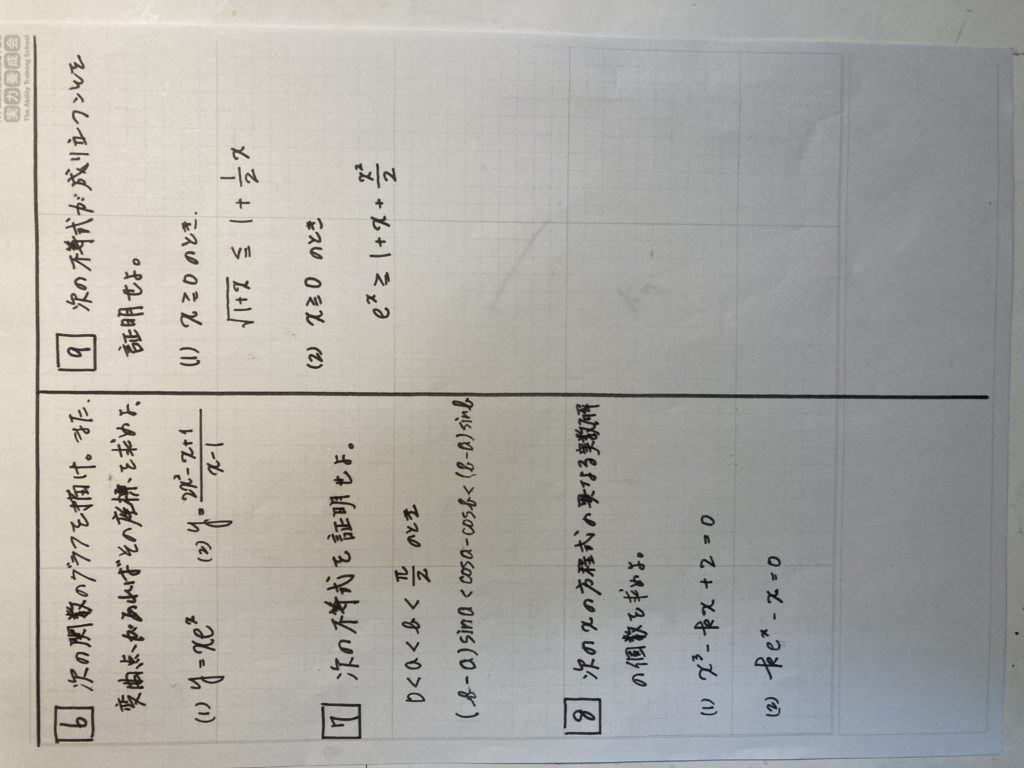 実力養成会
The Ability Training School
6 次の関数のグラフを描け。また、
変曲点があればその座標を求めよ。
(1) y=xe^x (2) y=\frac{2x^2-x+1}{x-1}
7 次の不等式を証明せよ。
0<a<b<\frac{π}{2} のとき
(b-a)sina<cosa-cosb<(b-a)sinb
8 次のxの方程式の異なる実数解
の個数を求めよ。
(1) x^3-kx+2=0
(2) ke^x-x=0
9 次の不等式が成り立つことを
証明せよ。
(1) x≧0のとき、
\sqrt{1+x} ≦ 1+\frac{1}{2}x
(2) x≧0 のとき
e^x ≧ 1+x+\frac{x^2}{2}